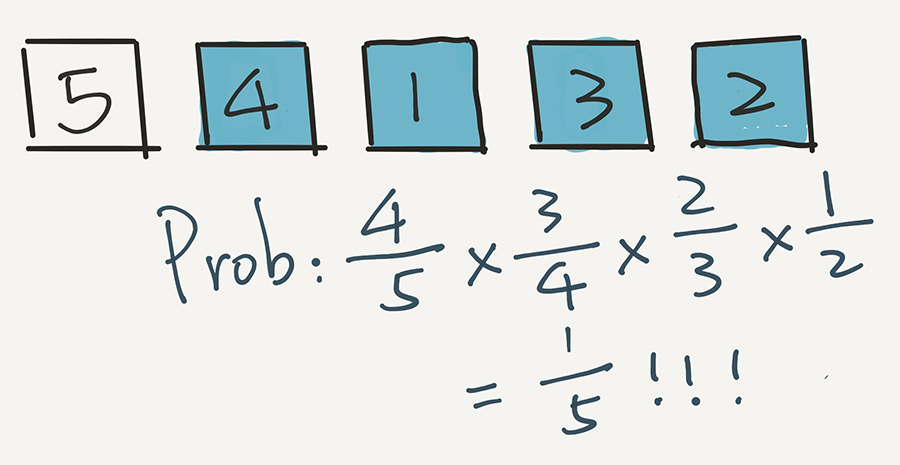 5 4 1 3 2
Prob: 4/5 × 3/4 × 2/3 × 1/2
= 1/5 !!!